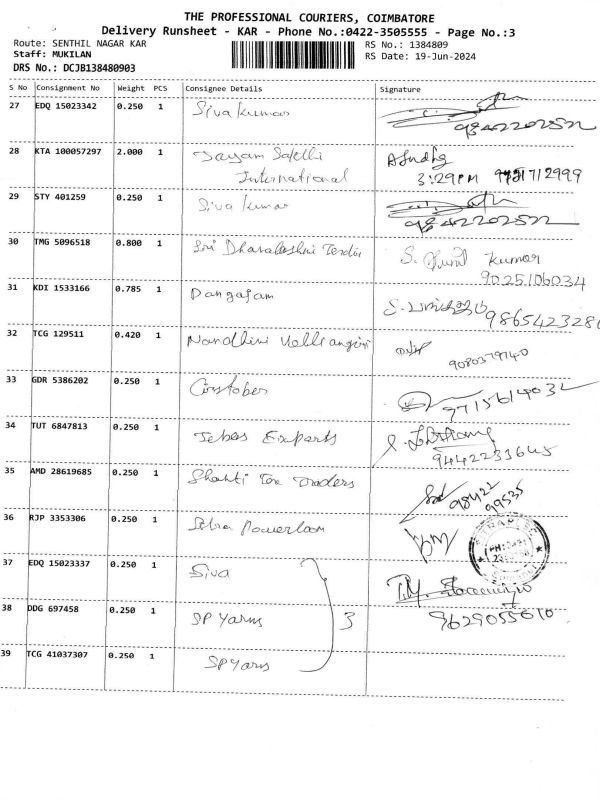 THE PROFESSIONAL COURIERS, COIMBATORE
Delivery Runsheet - KAR - Phone No.:0422-3505555 - Page No.:3
Route: SENTHIL NAGAR KAR
RS No.: 1384809
Staff: MUKILAN
RS Date: 19-Jun-2024
DRS No.: DCJB138480903
S No Consignment No Weight PCS Consignee Details Signature
27 EDQ 15023342 0.250 1 Siva Kumar
28 KTA 100057297 2.000 1
International 3:29PM
29 STY 401259 0.250 1 Siva Kumar
30 TMG 5096518 0.800 1 Sri S. Kumar
9025106034
31 KDI 1533166 0.785 1 Dangajam
9865423286
32 TCG 129511 0.420 1 Nandhini
9080379740
33 GDR 5386202 0.250 1
9715614032
34 TUT 6847813 0.250 1 Tebes Exports
9442233645
35 AMD 28619685 0.250 1 Shakti Tex Traders
98422
99535
36 RJP 3353306 0.250 1 Powerloom
37 EDQ 15023337 0.250 1 Siva
38 DDG 697458 0.250 1 SP Yarns 3
9629055610
39 TCG 41037307 0.250 1 SP Yarns